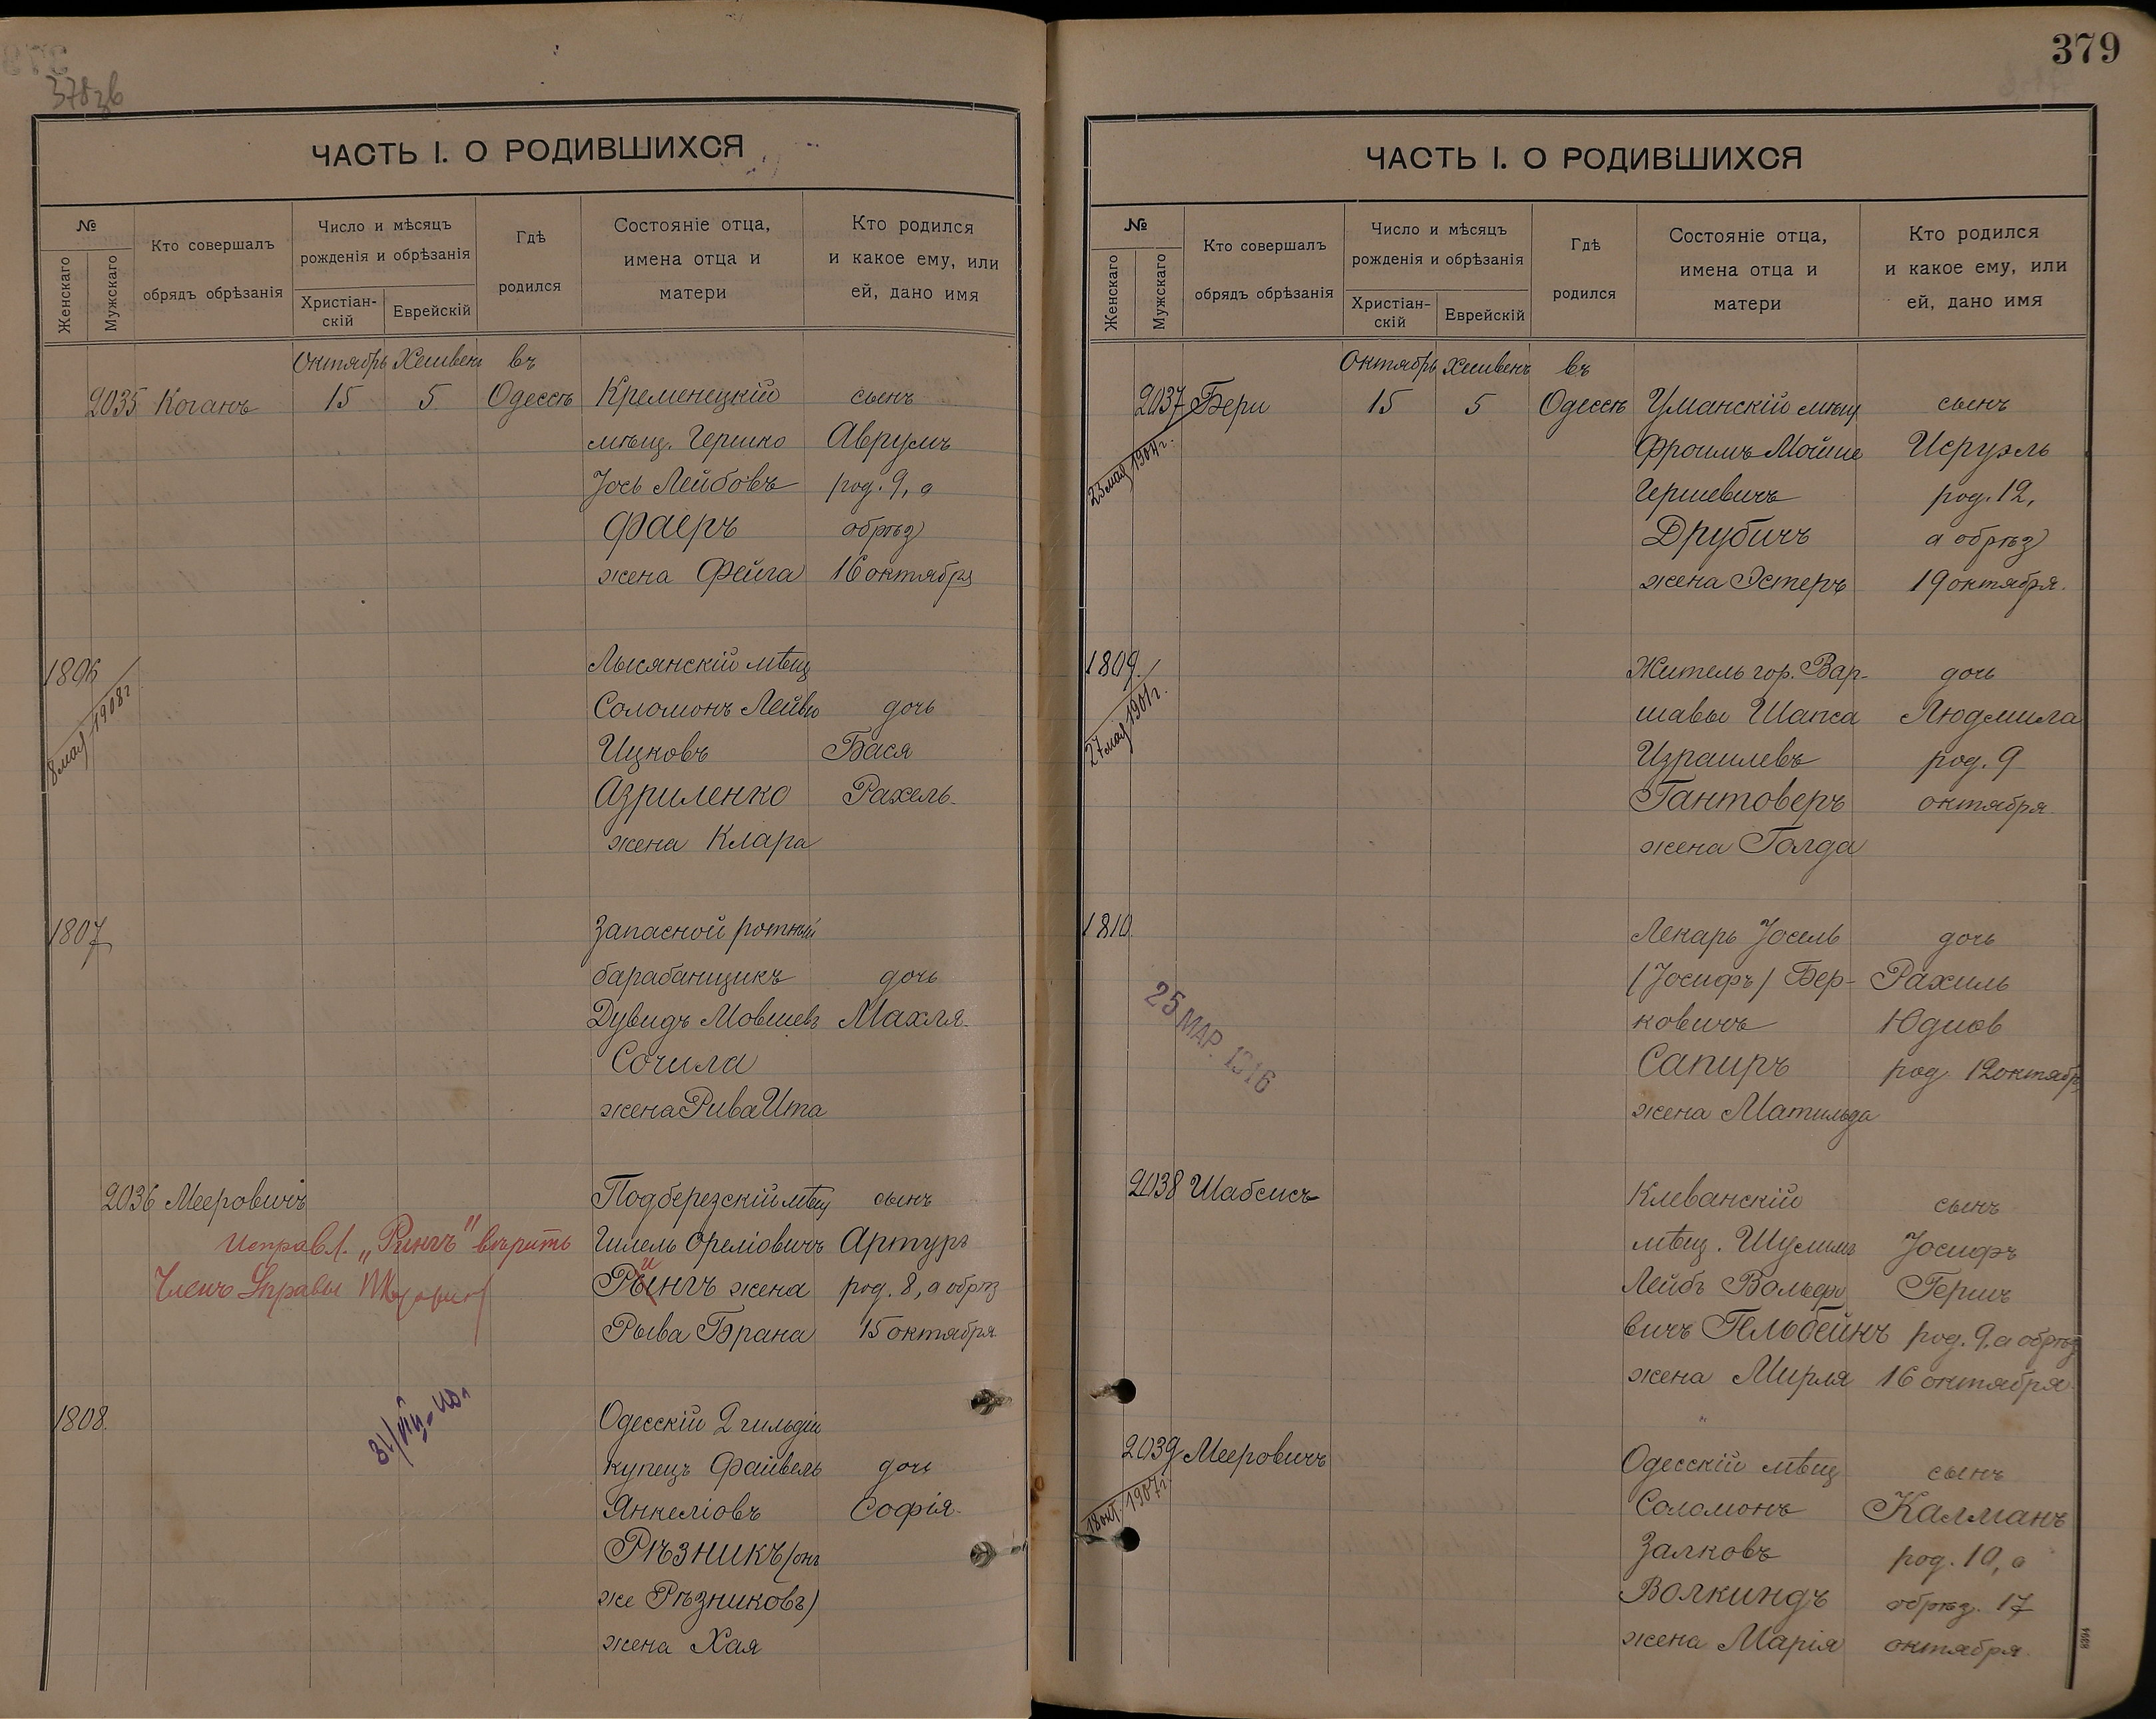 378 зв
ЧАСТЬ I. О РОДИВШИХСЯ
№
Женскаго
Мужскаго
Кто совершалъ
обрядъ обрѣзанія
Число и мѣсяцъ
рожденія и обрѣзанія
Христіан-
скій
Еврейскій
Гдѣ
родился
Состояніе отца,
имена отца и
матери
Кто родился
и какое ему, или
ей, дано имя
Октябрь Хешвенъ въ
2035 Коганъ 15 5 Одессѣ Кременецкій сынъ
мѣщ. Гершко Аврумъ
Іось Лейбовъ род. 9, а
Фаеръ обрѣз
жена Фейга 16 октября
1806 Лысянскій мѣщ
8 мая 1908 г
Соломонъ Лейвы дочь
Ицковъ Бася
Азриленко Рахель
жена Клара
1807 Запасной ротный
барабанщикъ дочь
Дувидъ Мовшевъ Махля
Сочила
жена Рива Ита
2036 Мееровичъ Подберезскій мѣщ сынъ
Исправл. „Рингъ" вѣрить Гилель Ореліовичъ Артуръ
Членъ Управы
Рынгъ жена род. 8, а обрѣз
и
Рыва Брана 15 октября
1808. Одесскій 2 гильдіи
купецъ Файвель дочь
Янкеліовъ Софія
Рѣзникъ (онъ
же Рѣзниковъ)
жена Хая
379
ЧАСТЬ I. О РОДИВШИХСЯ
№
Женскаго
Мужскаго
Кто совершалъ
обрядъ обрѣзанія
Число и мѣсяцъ
рожденія и обрѣзанія
Христіан-
скій
Еврейскій
Гдѣ
родился
Состояніе отца,
имена отца и
матери
Кто родился
и какое ему, или
ей, дано имя
Октябрь Хешвенъ въ
2037 Бери 15 5 Одессѣ Уманскій мѣщ сынъ
23 мая 1904 г.
Фроимъ Мойше Исруэль
Гершевичъ род. 12,
Друбичъ а обрѣз
жена Эстеръ 19 октября.
1809. Житель гор. Вар- дочь
27 мая 1901 г.
шавы Шапса Людмила
Израилевъ род. 9
Гантоверъ октября
жена Голда
1810. Лекарь Іосель дочь
(Іосифъ) Бер- Рахиль
25 МАР. 1916
ковичъ Юдиѳ
Сапиръ род 12 октябр
жена Матильда
2038 Шабсисъ Клеванскій сынъ
мѣщ. Шулимъ Іосифъ
Лейбъ Вольфо Гершъ
вичъ Гельбейнъ род. 9. а обрѣз
жена Мирля 16 октября
2039 Мееровичъ Одесскій мѣщ сынъ
18 окт. 1907 г.
Соломонъ Калманъ
Залковъ род. 10, а
Волкиндъ обрѣз. 17
жена Марія октября
8394